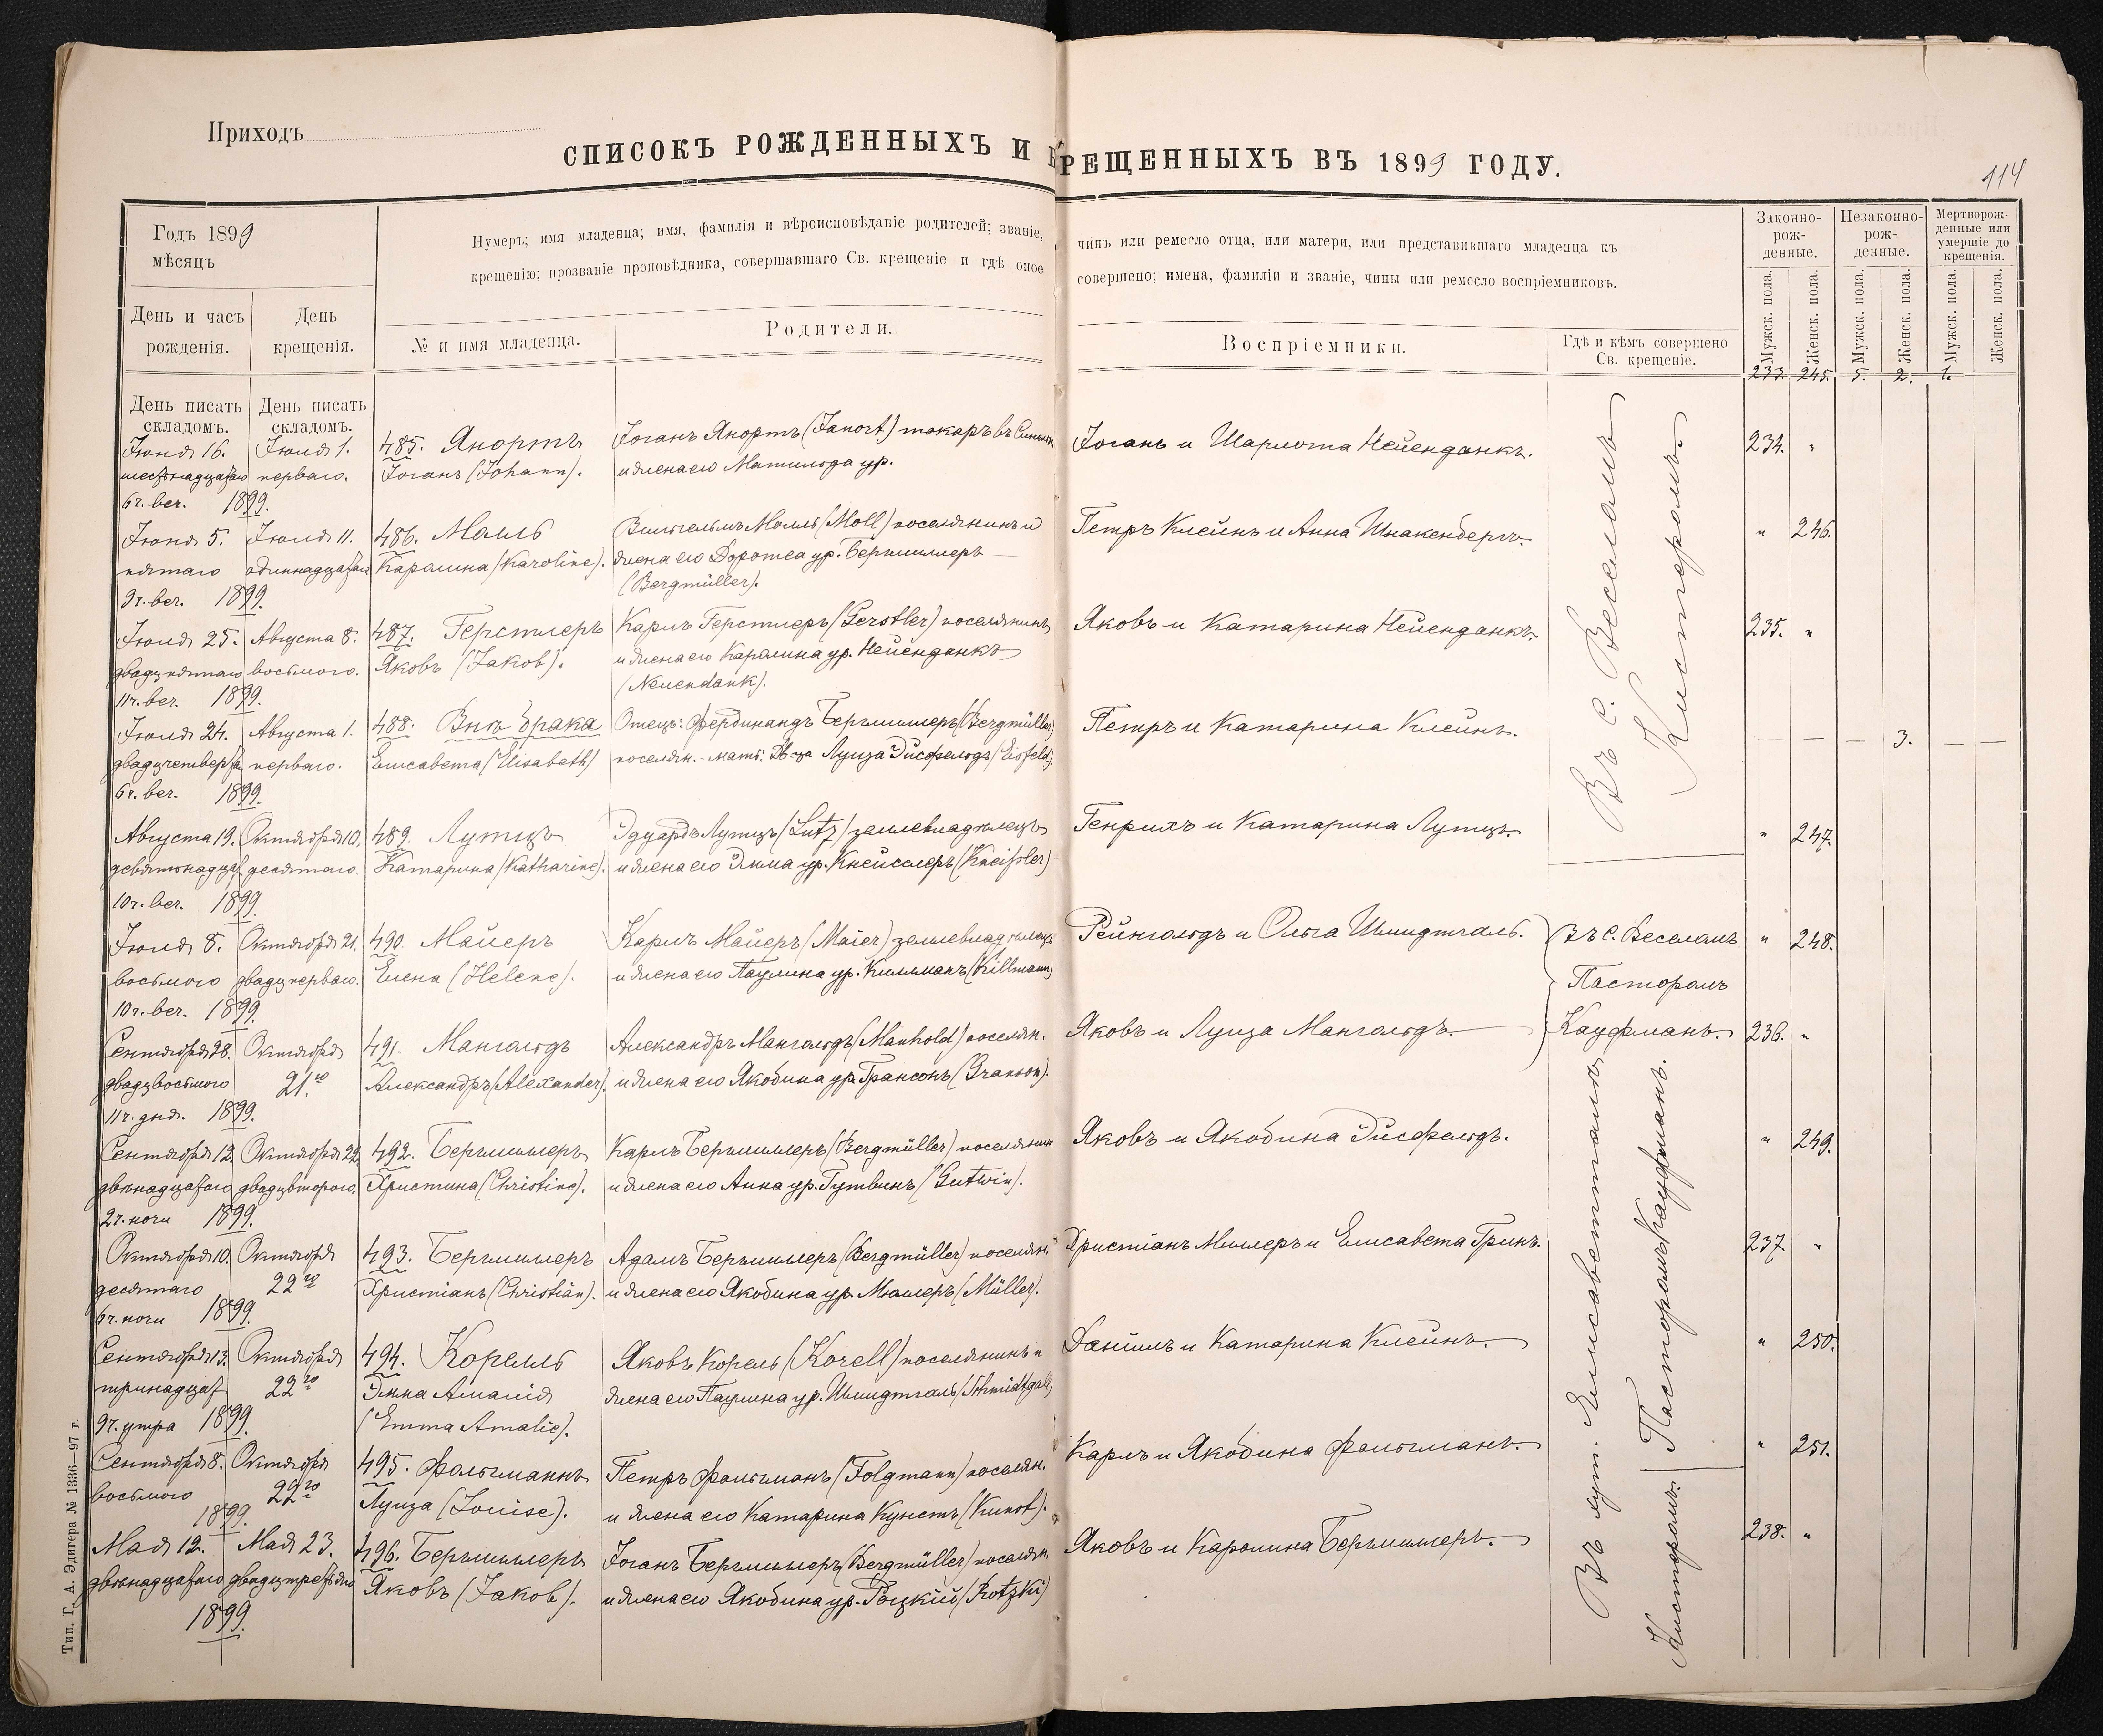 Приходъ
СПИСОКЪ РОЖДЕННЫХЪ И КРЕЩЕННЫХЪ ВЪ 1899 ГОДУ.
114
Годъ 1899
мѣсяцъ
День и часъ
рожденія.
День
крещенія.
Нумеръ; имя младенца; имя, фамилія и вѣроисповѣданіе родителей; званіе,
крещенію; прозваніе проповѣдника, совершавшаго Св. крещеніе и гдѣ оное
№ и имя младенца.
Родители.
чинъ или ремесло отца, или матери, или представившаго младенца къ
совершено; имена, фамиліи и званіе, чины или ремесло воспріемниковъ.
Воспріемники.
Гдѣ и кѣмъ совершено
Св. крещеніе.
Законно-
рож-
денные.
Незаконно-
рож-
денные.
Мертворож-
денные или
умершіе до
крещенія.
Мужск. пола.
Женск. пола.
Мужск. пола.
Женск. пола.
Мужск. пола.
Женск. пола.
233. 245. 5. 2. 1.
День писать
складомъ.
День писать
складомъ.
Іюня 16.
шестнадцатаго
6 ч. веч. 1899.
Іюля 1.
перваго.
485. Янортъ
Іоганъ (Johann).
Іоганъ Янортъ (Janort) токарь въ
и жена его Матильда ур.
Іоганъ и Шарлота Нейенданкъ.
234. "
Іюня 5.
пятаго
9 ч. веч. 1899.
Іюля 11.
486. Молль
Каролина (Karoline).
Вильгельмъ Молль (Moll) поселянинъ и
жена его Доротеа ур. Бергмиллеръ
(Bergmüller).
Петръ Клейнъ и Анна Шнакенбергъ.
" 246.
Іюля 25.
двадцпятаго
11 ч. веч. 1899.
Августа 8.
восьмого.
487. Герстлеръ
Яковъ (Jakob).
Карлъ Герстлеръ (Gerstler) поселянинъ
и жена его Каролина ур. Нейенданкъ
(Neuendank).
Яковъ и Катарина Нейенданкъ.
235. "
Іюля 24.
6 ч. веч. 1899.
Августа 1.
перваго.
488. Внѣ брака
Елисавета (Elisabeth)
Отецъ: Фердинандъ Бергмиллеръ (Bergmüller)
поселян. - мать: Дв-ца Луиза Эйсфельдъ (Eisfeld)
Петръ и Катарина Клейнъ.
— — — 3. — —
Въ с. Веселомъ
Кистеромъ.
Августа 19.
10 ч. веч. 1899.
Октября 10.
десятаго.
489. Лутцъ
Катарина (Katharine).
Эдуардъ Лутцъ (Lutz) землевладѣлецъ
и жена его Эмма ур. Кнейсслеръ (Kneissler)
Генрихъ и Катарина Лутцъ.
" 247.
Іюля 8.
восьмого
10 ч. веч. 1899.
Октября 21.
двадцперваго.
490. Майеръ
Елена (Helene).
Карлъ Майеръ (Maier) землевладѣлецъ
и жена его Паулина ур. Килльманъ (Killmann)
Рейнгольдъ и Ольга Шмидтгаль.
Въ с. Веселомъ
Пасторомъ
Кауфманъ.
" 248.
Сентября 28.
двадцвосьмого
11 ч. дня. 1899.
Октября
21го
491. Мангольдъ
Александръ (Alexander).
Александръ Мангольдъ (Manhold) поселян.
и жена его Якобина ур. Грансонъ (Granson).
Яковъ и Луиза Мангольдъ.
236. "
Сентября 12.
двѣнадцатаго
2 ч. ночи 1899.
Октября 22.
двадцвторого.
492. Бергмиллеръ
Христина (Christine).
Карлъ Бергмиллеръ (Bergmüller) поселянинъ
и жена его Анна ур. Гутвинъ (Gutwin).
Яковъ и Якобина Эйсфельдъ.
" 249.
Октября 10.
десятаго
6 ч. ночи 1899.
Октября
22го
493. Бергмиллеръ
Христіанъ (Christian).
Адамъ Бергмиллеръ (Bergmüller) поселян.
и жена его Якобина ур. Мюллеръ (Müller).
Христіанъ Миллеръ и Елисавета Гринъ.
237. "
Сентября 13.
9 ч. утра 1899.
Октября
22го
494. Корелль
Эмма Амалія
(Emma Amalie).
Яковъ Корель (Korell) поселянинъ и
жена его Паулина ур. Шмидтгаль (Schmidtgall)
Даніилъ и Катарина Клейнъ.
" 250.
Сентября 8.
восьмого
1899.
Октября
22го
495. Фольгманнъ
Луиза (Louise).
Петръ Фольгманъ (Folgmann) поселян.
и жена его Катарина Кунстъ (Kunst).
Карлъ и Якобина Фольгманъ.
" 251.
Въ хут. Елисаветталь
Пасторомъ Кауфманъ.
Мая 12.
двѣнадцатаго
1899.
Мая 23.
496. Бергмиллеръ
Яковъ (Jakob).
Іоганъ Бергмиллеръ (Bergmüller) поселян.
и жена его Якобина ур. Роцкій (Rotzki)
Яковъ и Каролина Бергмиллеръ.
Кистеромъ.
238. "
Тип. Г. А. Эдигера № 1336—97 г.